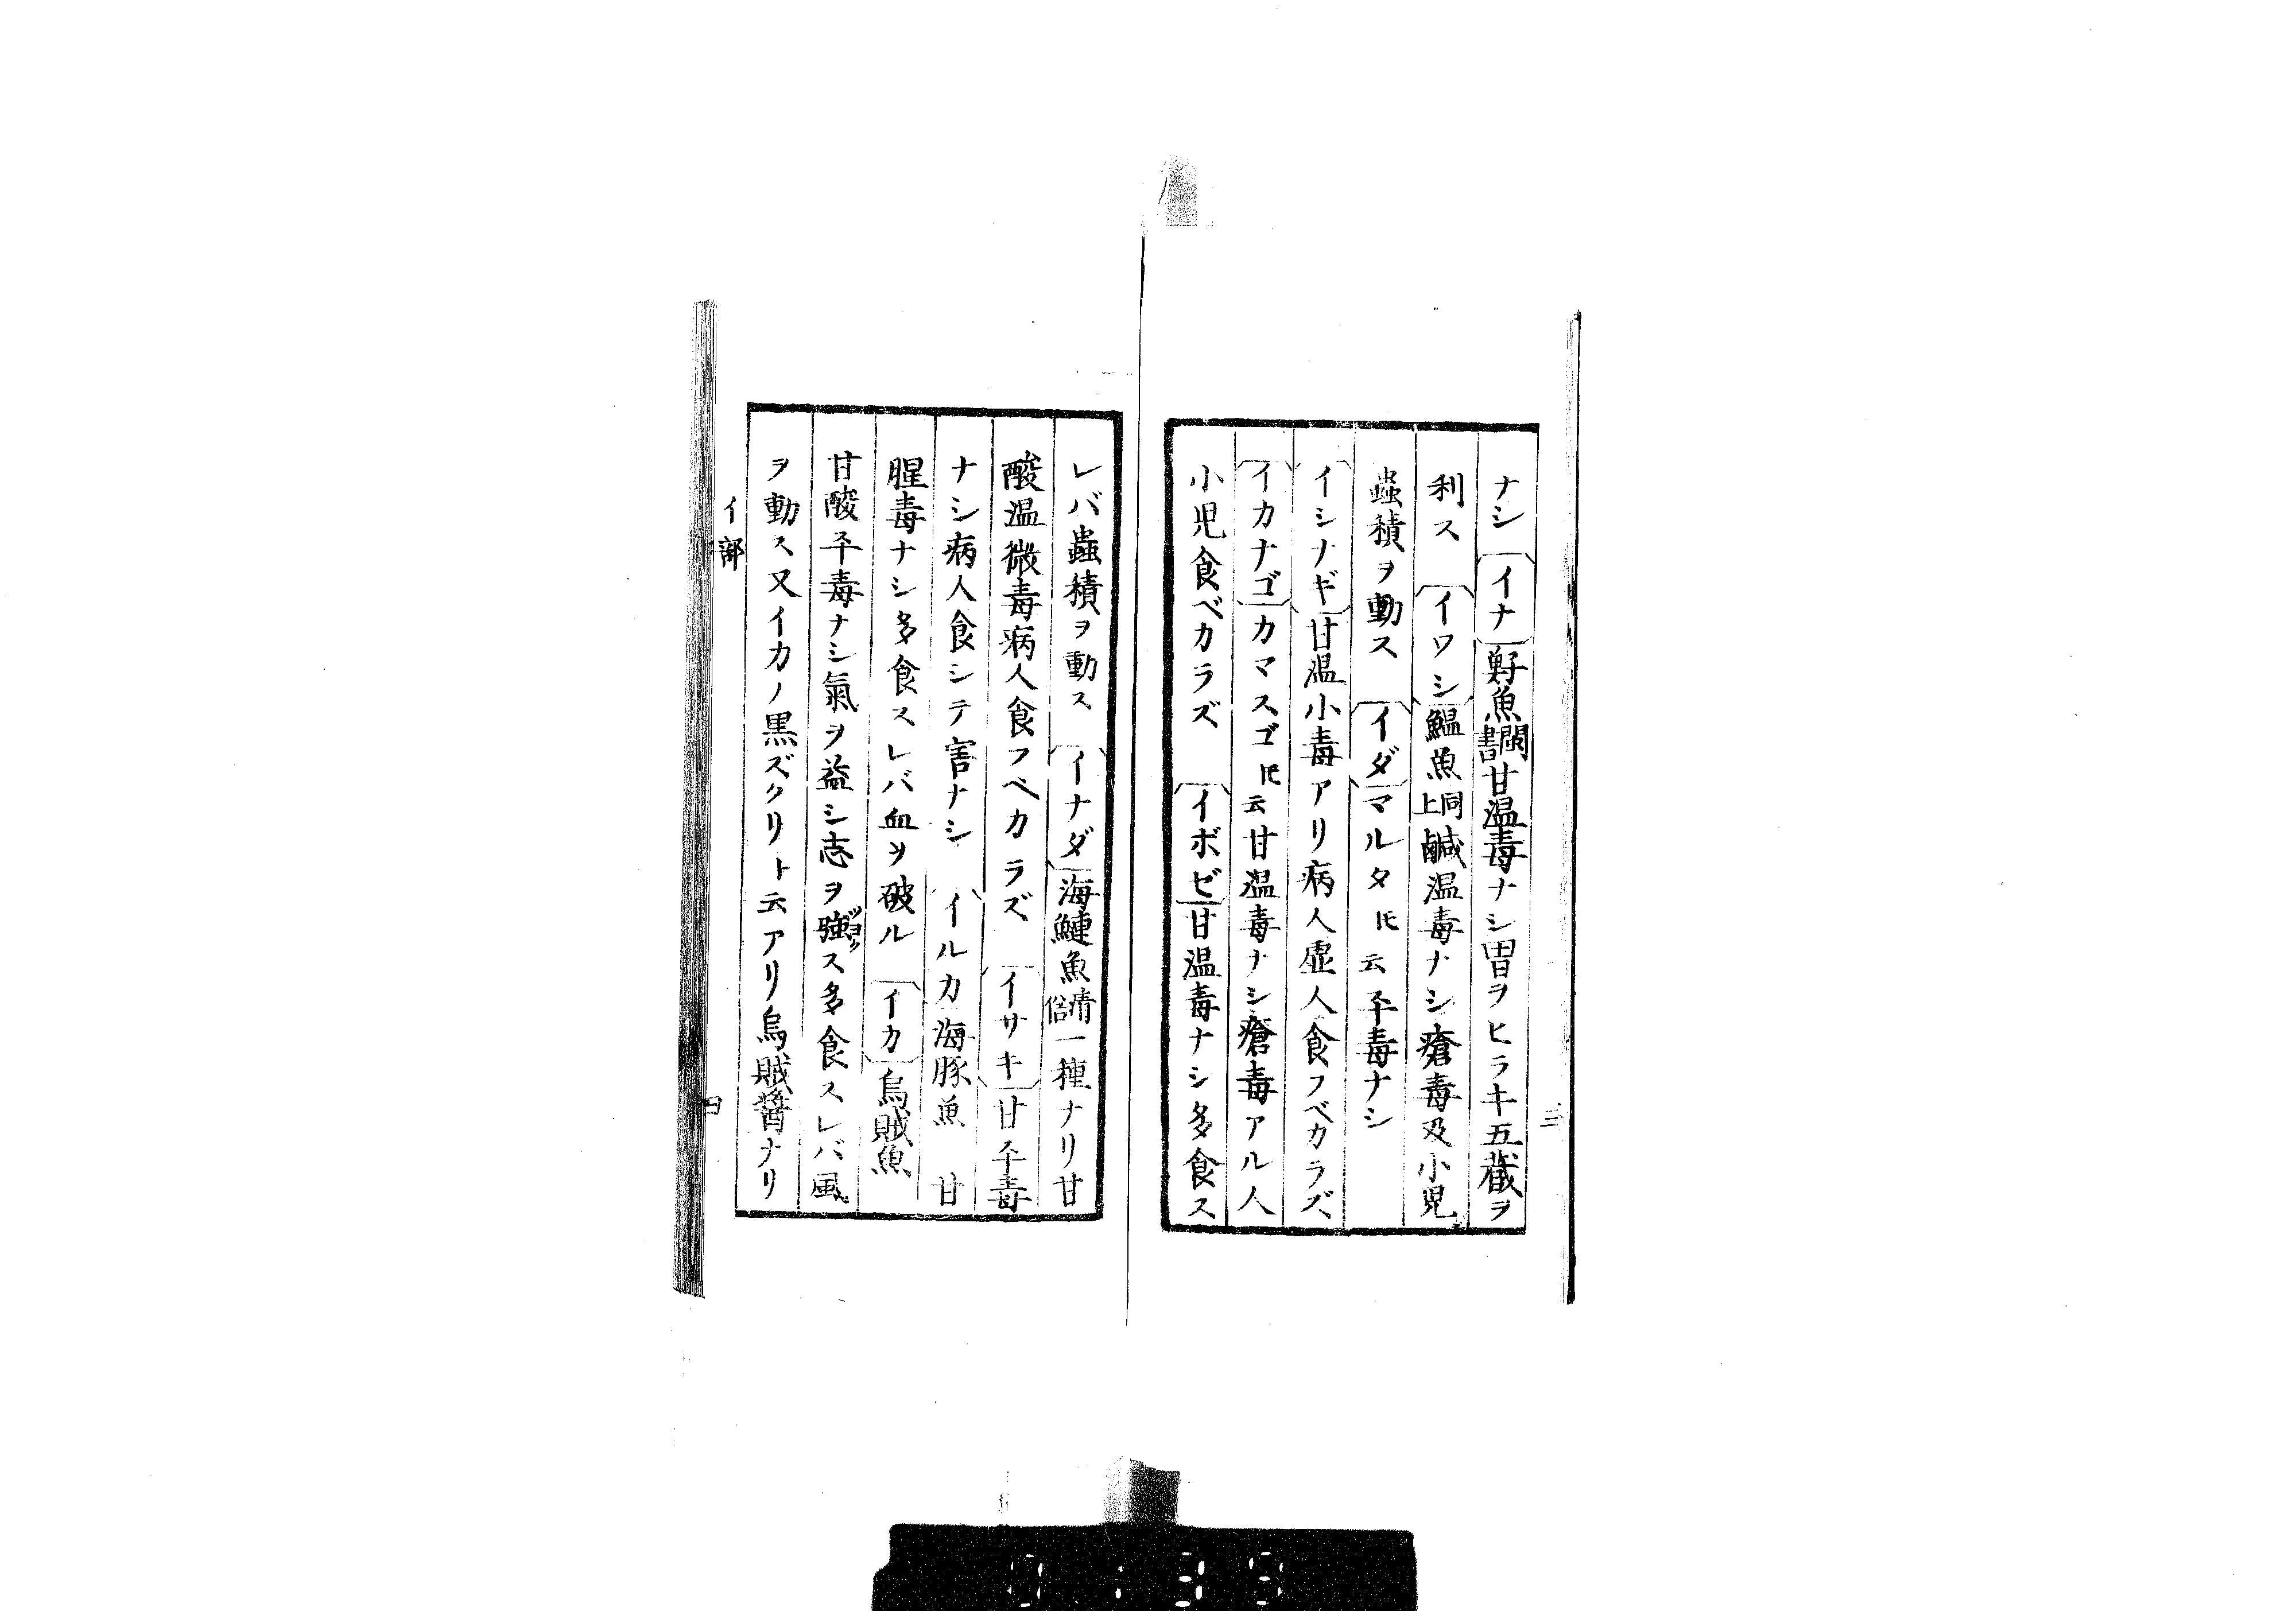 ナシ 〔イナ〕 鱘魚 閩書 甘温毒ナシ胃ヲヒラキ五蔵ヲ
利ス 〔イワシ〕 鰮魚 同上 鹹温毒ナシ瘡毒及小児
蟲積ヲ動ス 〔イダ〕 マルタ 氏云 平毒ナシ
〔イシナギ〕 甘温小毒アリ病人虚人食フベカラズ、
〔イカナゴ〕 カマスゴ 氏云 甘温毒ナシ瘡毒アル人
小児食ベカラズ 〔イボゼ〕 甘温毒ナシ多食ス
三
レバ蟲積ヲ動ス 〔イナダ〕 海鰱魚 清俗 一種ナリ甘
酸温微毒病人食フベカラズ 〔イサキ〕 甘平毒
ナシ病人食シテ害ナシ 〔イルカ 海豚魚 甘
腥毒ナシ多食スレバ血ヲ破ル 〔イカ〕 烏賊魚
甘酸平毒ナシ氣ヲ益シ志ヲ強ツヨクス多食スレバ風
ヲ動ス又イカノ黒ズクリト云アリ烏賊醬ナリ
イ部 四